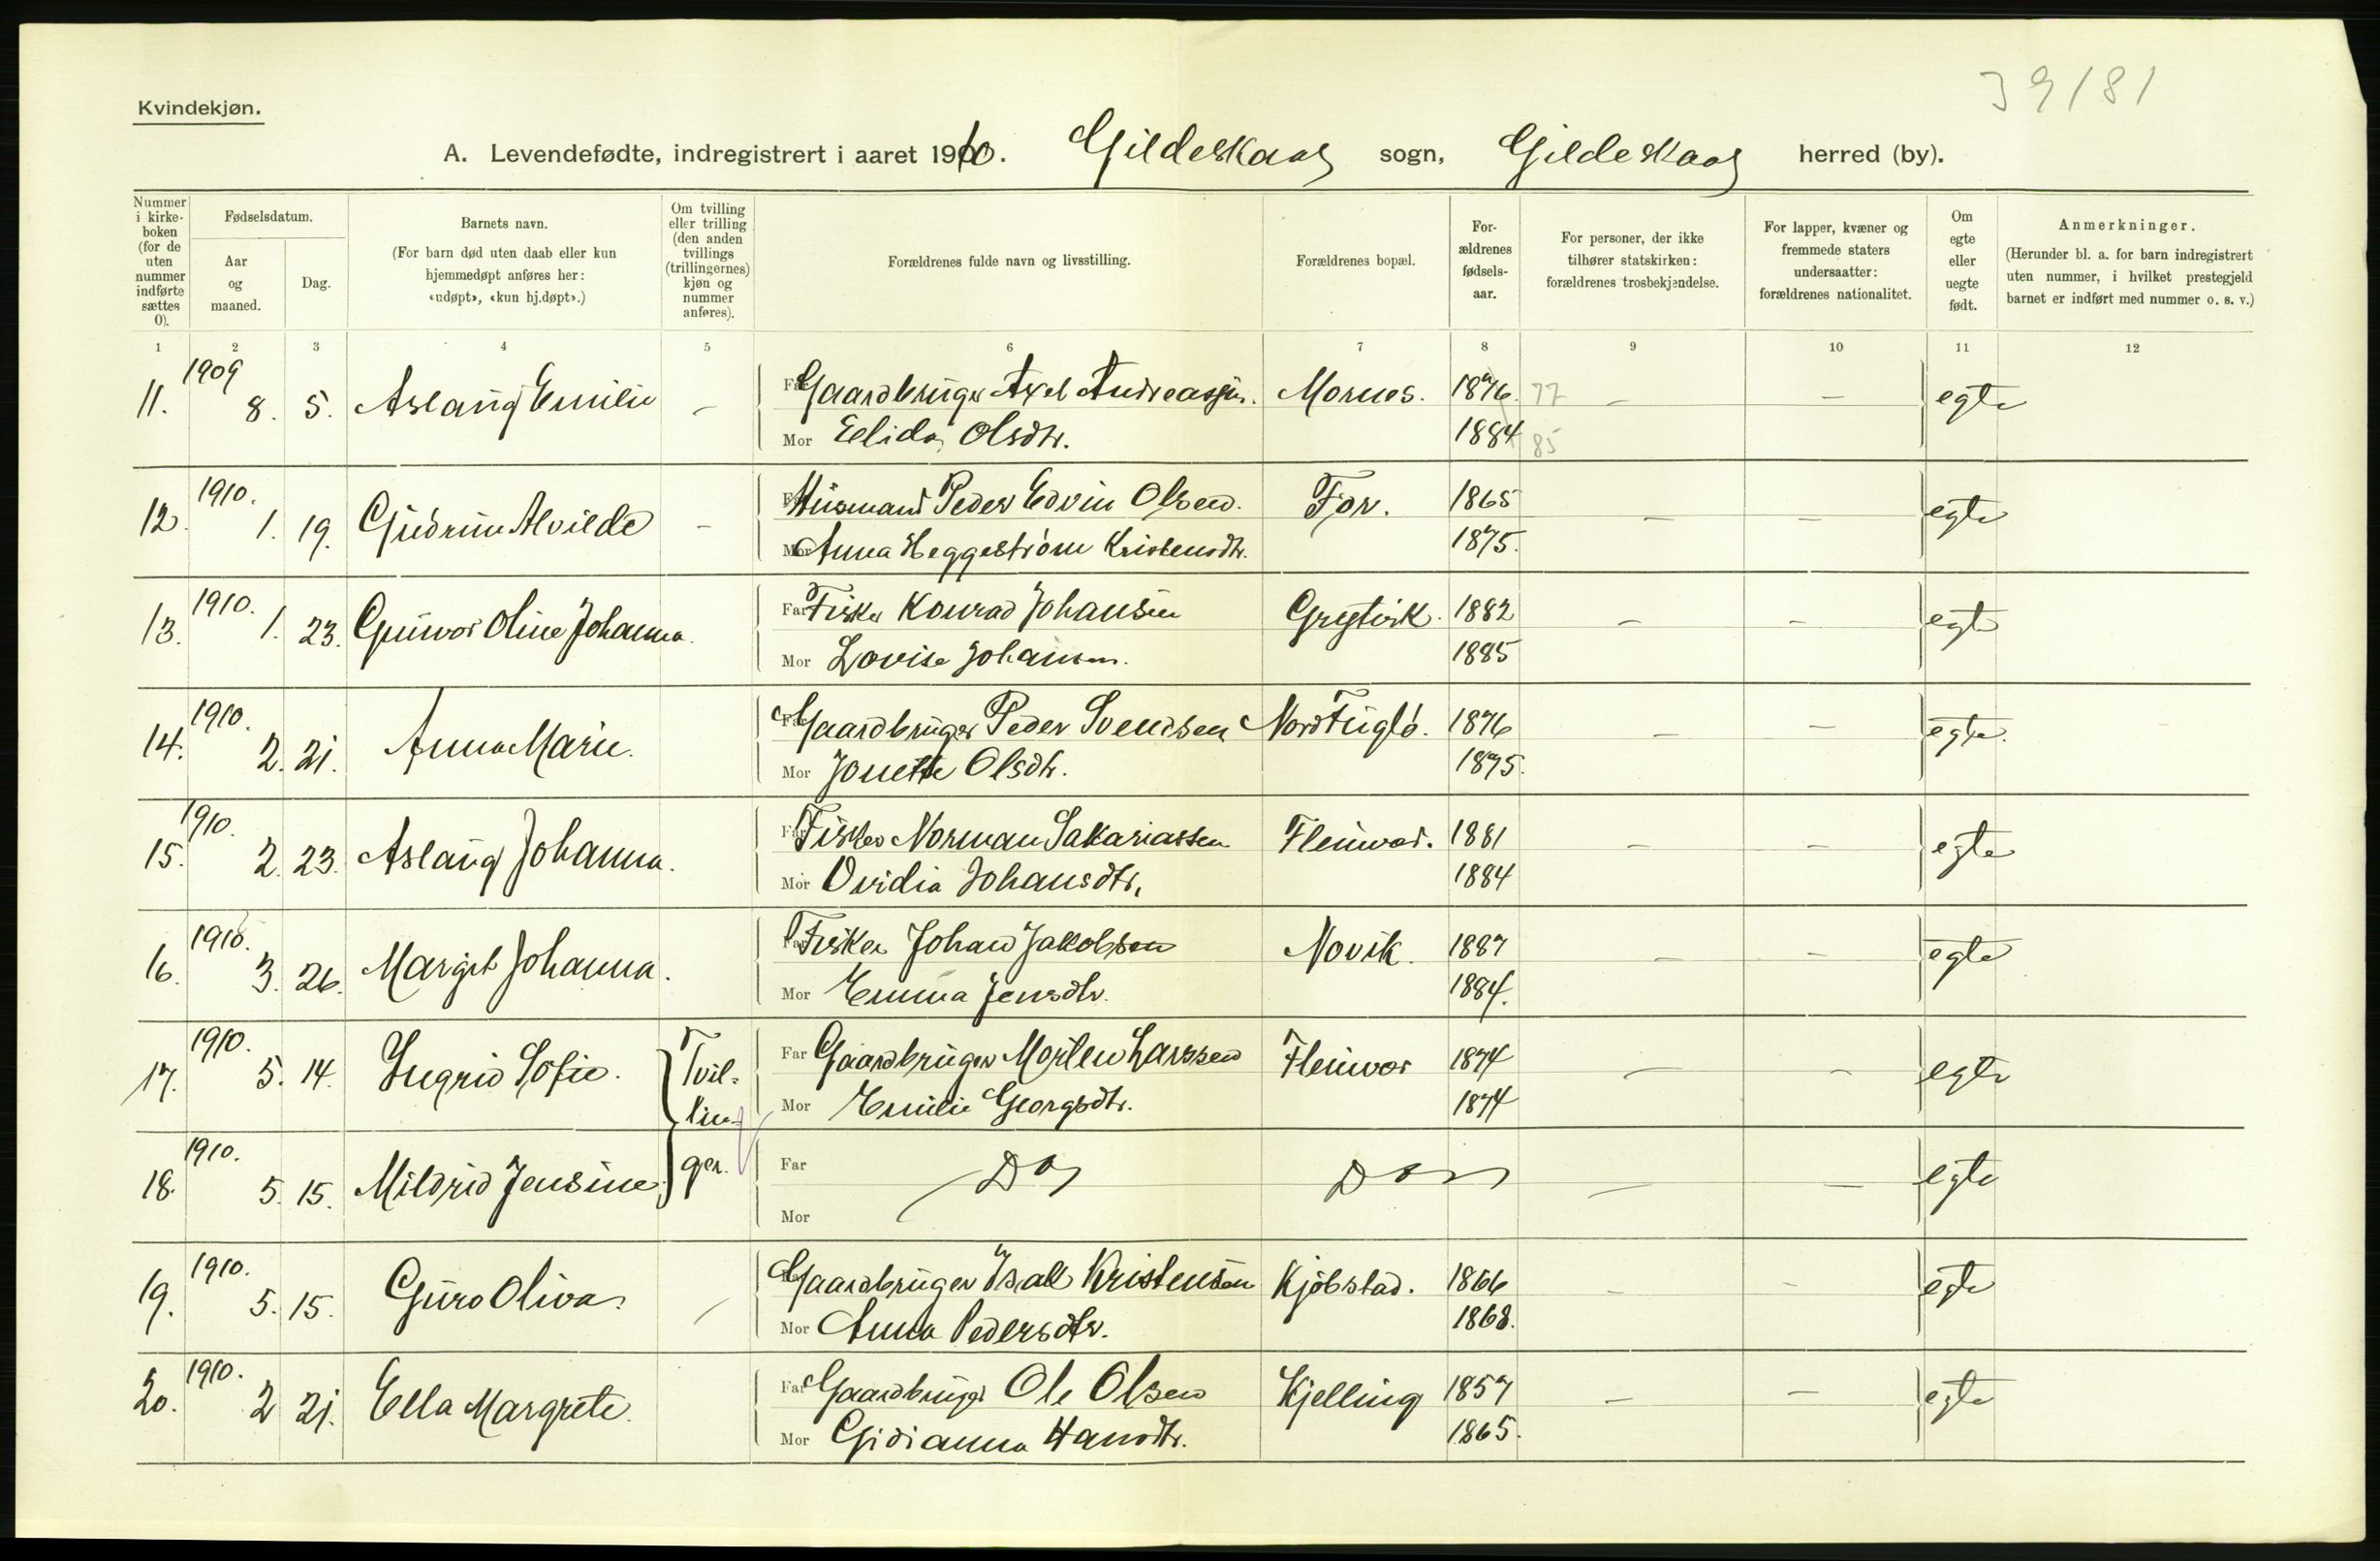 39181
Kvindekjøn.
A. Levendefødte, indregistrert i aaret 1910. Gildeskaal sogn, Gildeskaal herred (by).
Nummer i kirkeboken (for de uten nummer indførte sættes 0).
Fødselsdatum.
Aar og maaned.
Dag.
Barnets navn.
(For barn død uten daab eller kun hjemmedøpt anføres her: «udøpt», «kun hj.døpt».)
Om tvilling eller trilling (den anden tvillings (trillingernes) kjøn og nummer anføres).
Forældrenes fulde navn og livsstilling.
Forældrenes bopæl.
Forældrenes fødselsaar.
For personer, der ikke tilhører statskirken: forældrenes trosbekjendelse.
For lapper, kvæner og fremmede staters undersaatter: forældrenes nationalitet.
Om egte eller uegte født.
Anmerkninger.
(Herunder bl. a. for barn indregistrert uten nummer, i hvilket prestegjeld barnet er indført med nummer o. s. v.)
1 2 3 4 5 6 7 8 9 10 11 12
11. 1909 8. 5. Aslaug Emilie – Far Gaardbruger Axel Andreassen. Mornes. 1876. 77 – – egte
Mor Elida Olsdtr. 1884 85
12. 1910. 1. 19. Gudrun Alvilde – Far Husmand Peder Edvin Olsen. For. 1865 – – egte
Mor Anna Heggestrøm Kristensdtr. 1875.
13. 1910. 1. 23. Gunvor Oline Johanna. Far Fisker Konrad Johansen 1882 – – egte
Mor Lovise Johansen. 1885
14. 1910. 2. 21. Anna Marie. Far Gaardbruger Peder Svendsen Nord Fuglø. 1876 – – egte.
Mor Jonette Olsdtr. 1875.
15. 1910. 2. 23. Aslaug Johanna. Far Fisker Norman Sakariassen Fleinvær. 1881 – – egte
Mor Ovidia Johansdtr. 1884
16. 1910. 3. 26. Margit Johanna. Far Fisker Johan Jakobsen Novik. 1887 – – egte
Mor Emma Jensdtr. 1884.
17. 1910. 5. 14. Ingrid Sofie. Tvil- Far Gaardbruger Morten Larssen Fleinvær 1874 – – egte
lin- Mor Emilie Georgsdtr. 1874
18. 1910. 5. 15. Mildrid Jensine. ger. Far Do Do – – egte
Mor
19. 1910. 5. 15. Guro Oliva. – Far Gaardbruger Isak Kristensen Kjøbstad. 1866 – – egte
Mor Anna Pedersdtr. 1868.
20. 1910. 2 21. Ella Margrete. Far Gaardbruger Ole Olsen Kjelling 1857 – – egte
Mor Gidianna Hansdtr. 1865.